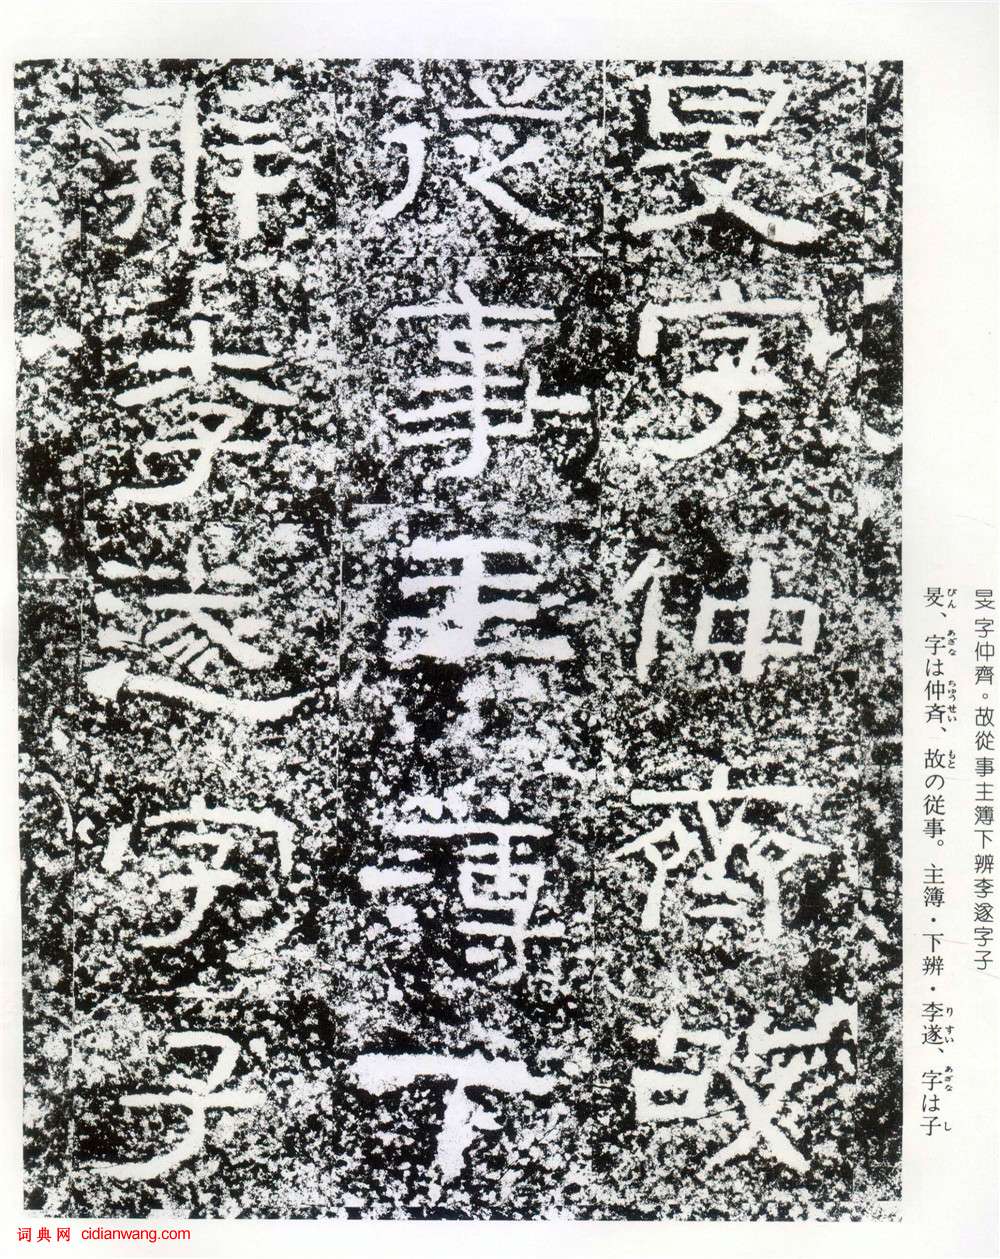 旻字仲齊。故從事主簿下辨李遂字子
旻、字は仲斉、故の従事。主簿・下辨・李遂、字は子
びん あざな ちゅうせい もと りすい あざな し
旻字仲齊故
從事主簿下
辨李遂字子
词典网 cidianwang.com